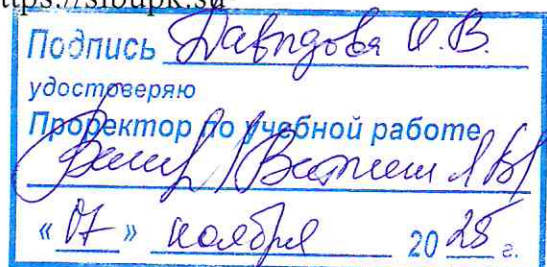 https://sibupk.su
Подпись Давыдова И.В.
удостоверяю
Проректор по учебной работе
« 07 » ноября 2025 г.